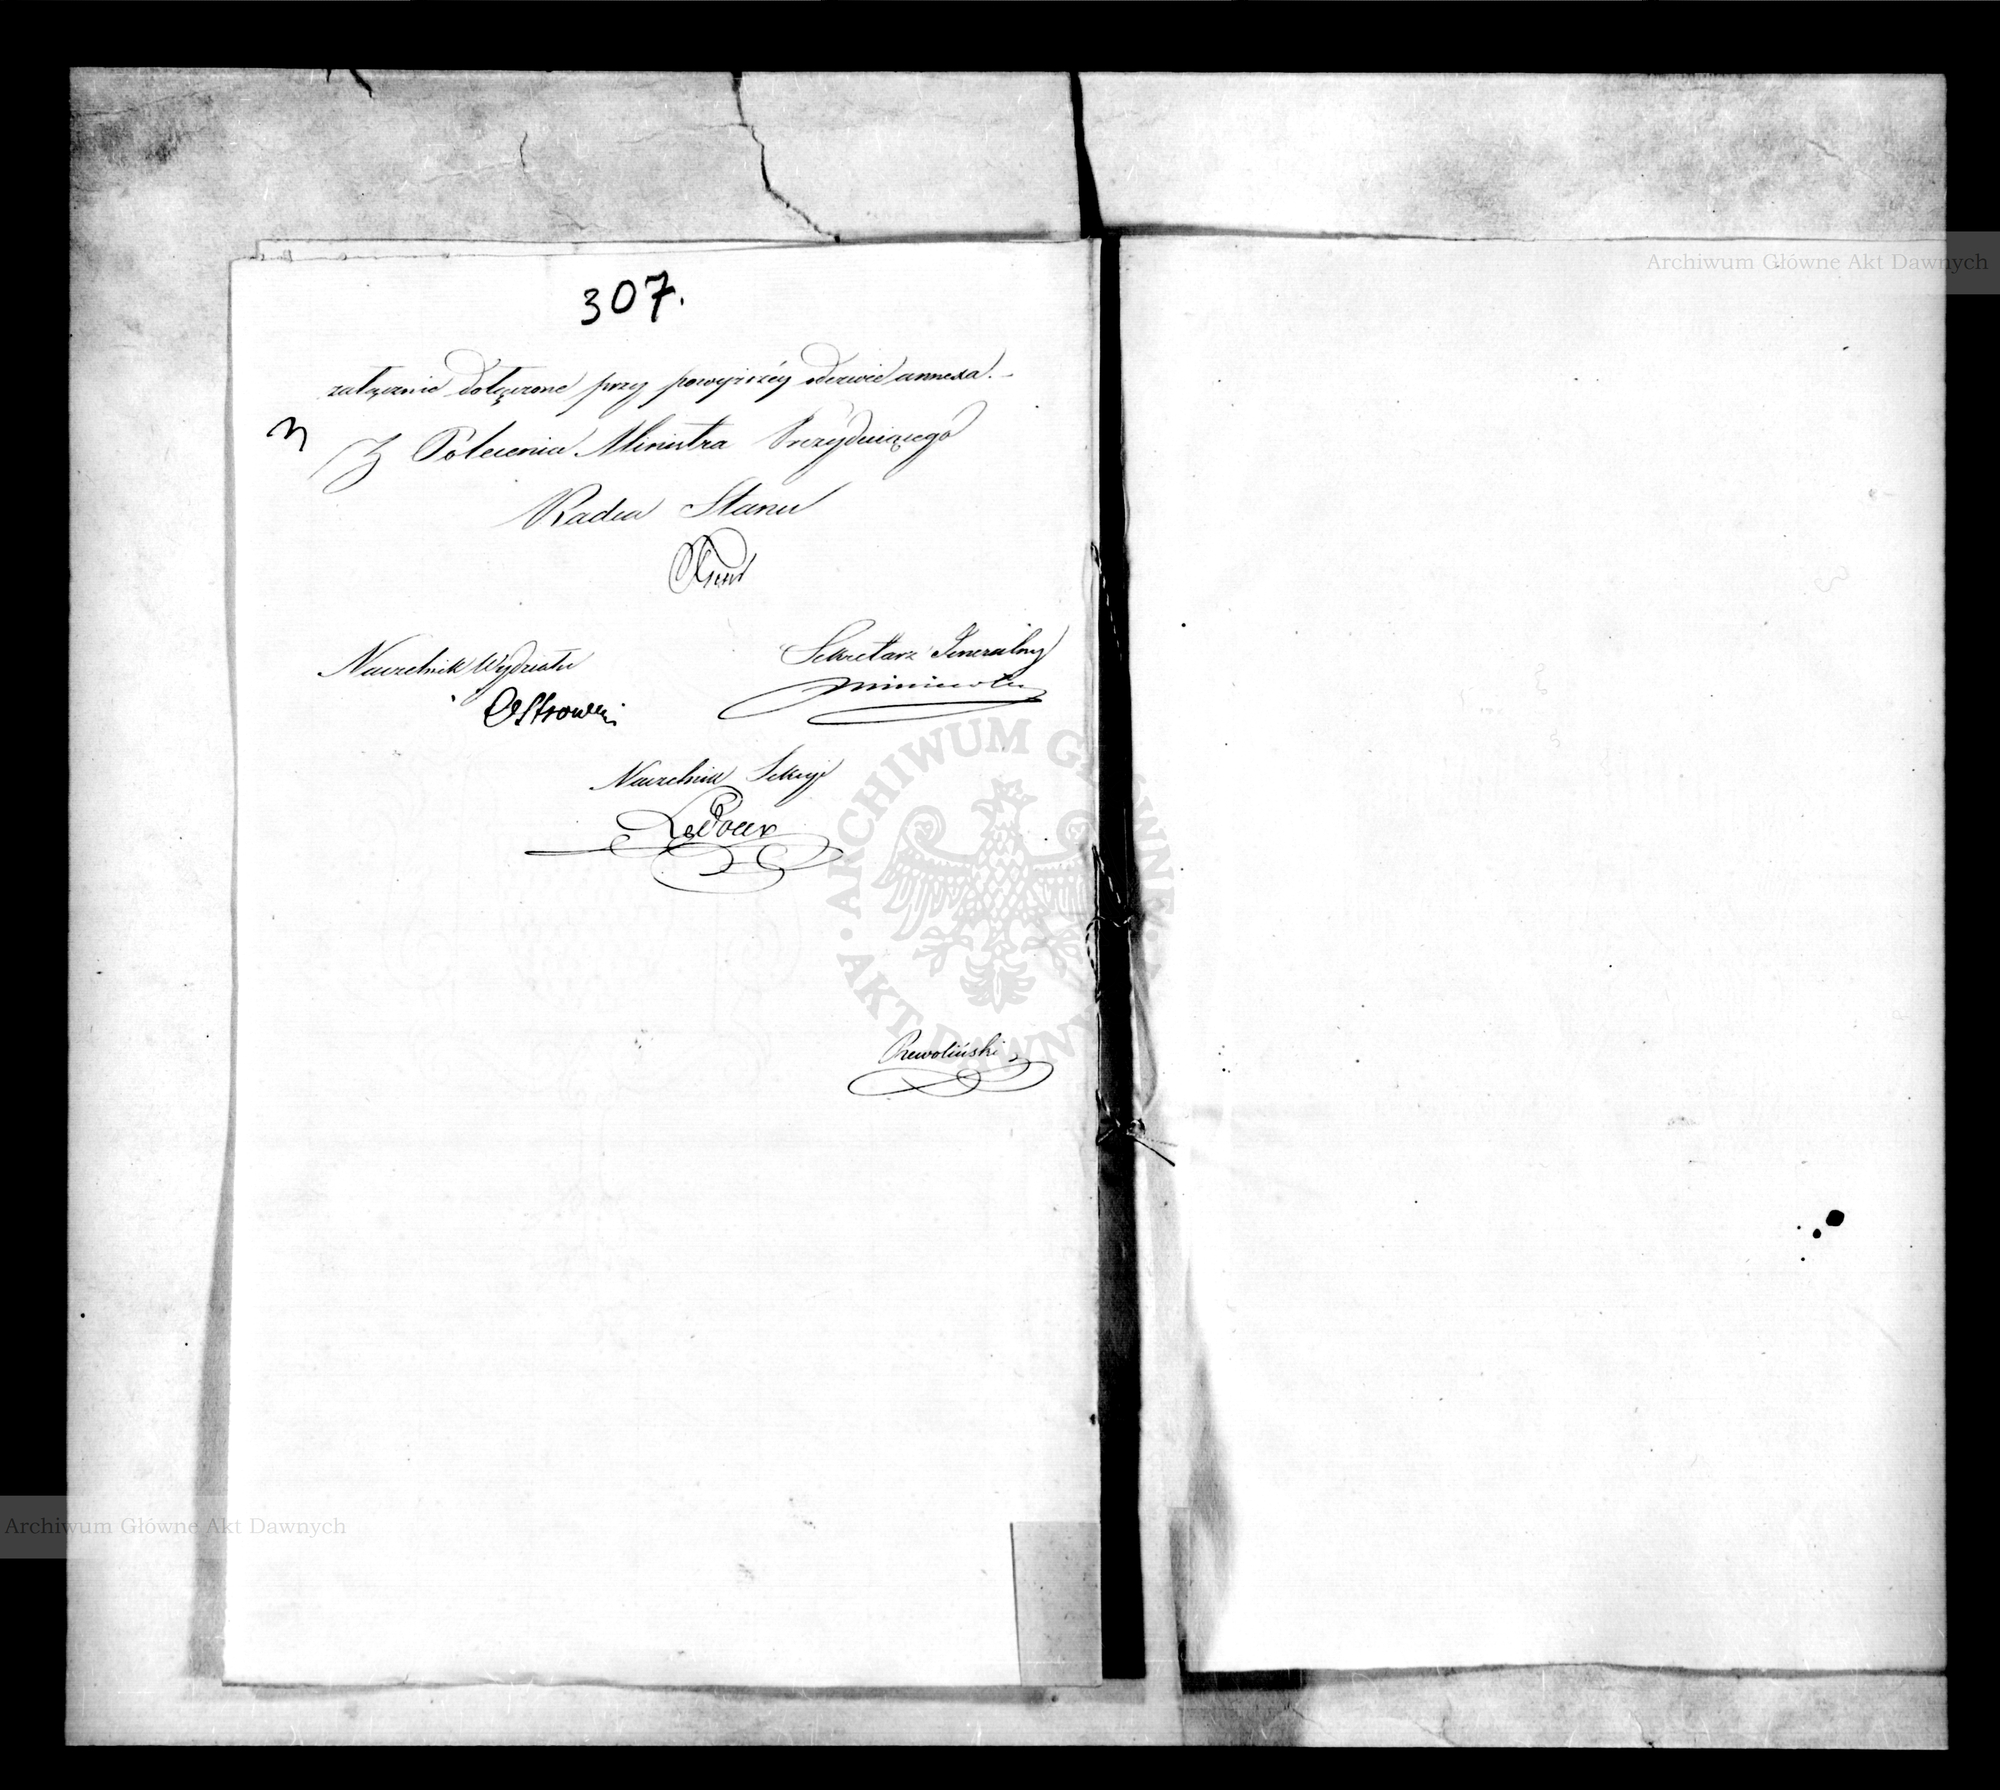 307.
załącznie dołączone przy powyższéy odezwie annexa.-
Z Polecenia Ministra Prezyduiącego
Radca Stanu
Naczelnik Wydziału
Sekretarz Jeneralny
Ostrowski
Naczelnik Sekcyi
Ledoux
Rewoliński
Archiwum Główne Akt Dawnych
ARCHIWUM GŁÓWNE
AKT DAWNYCH
Archiwum Główne Akt Dawnych